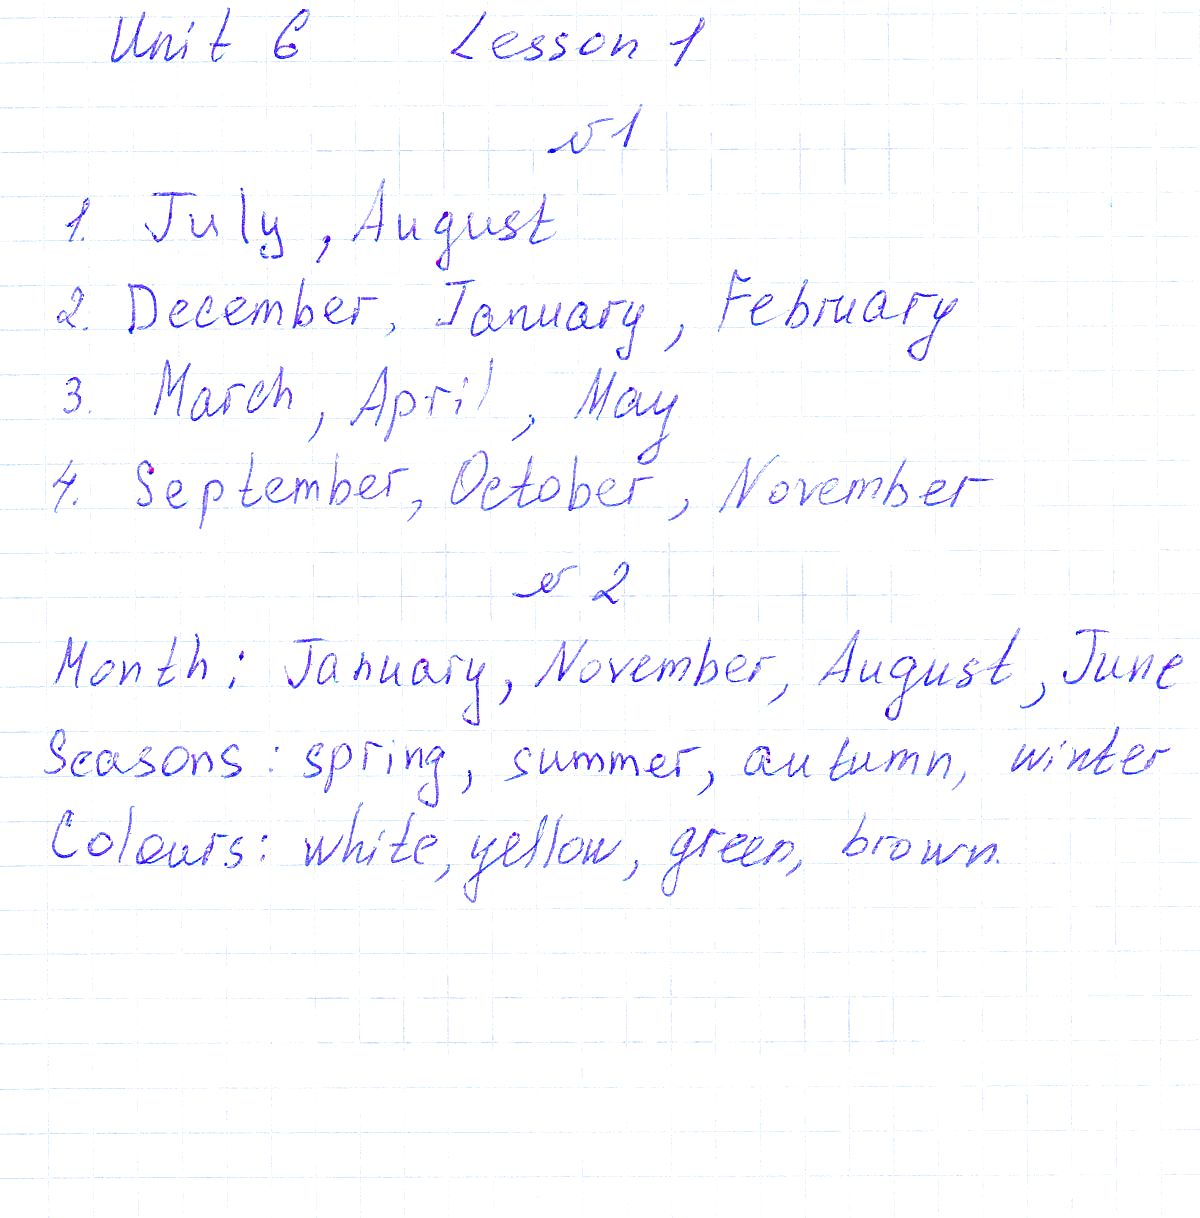 Unit 6 Lesson 1
№1
1. July, August
2. December, January, February
3. March, April, May
4. September, October, November
№ 2
Month: January, November, August, June
Seasons: spring, summer, autumn, winter
Colours: white, yellow, green, brown.